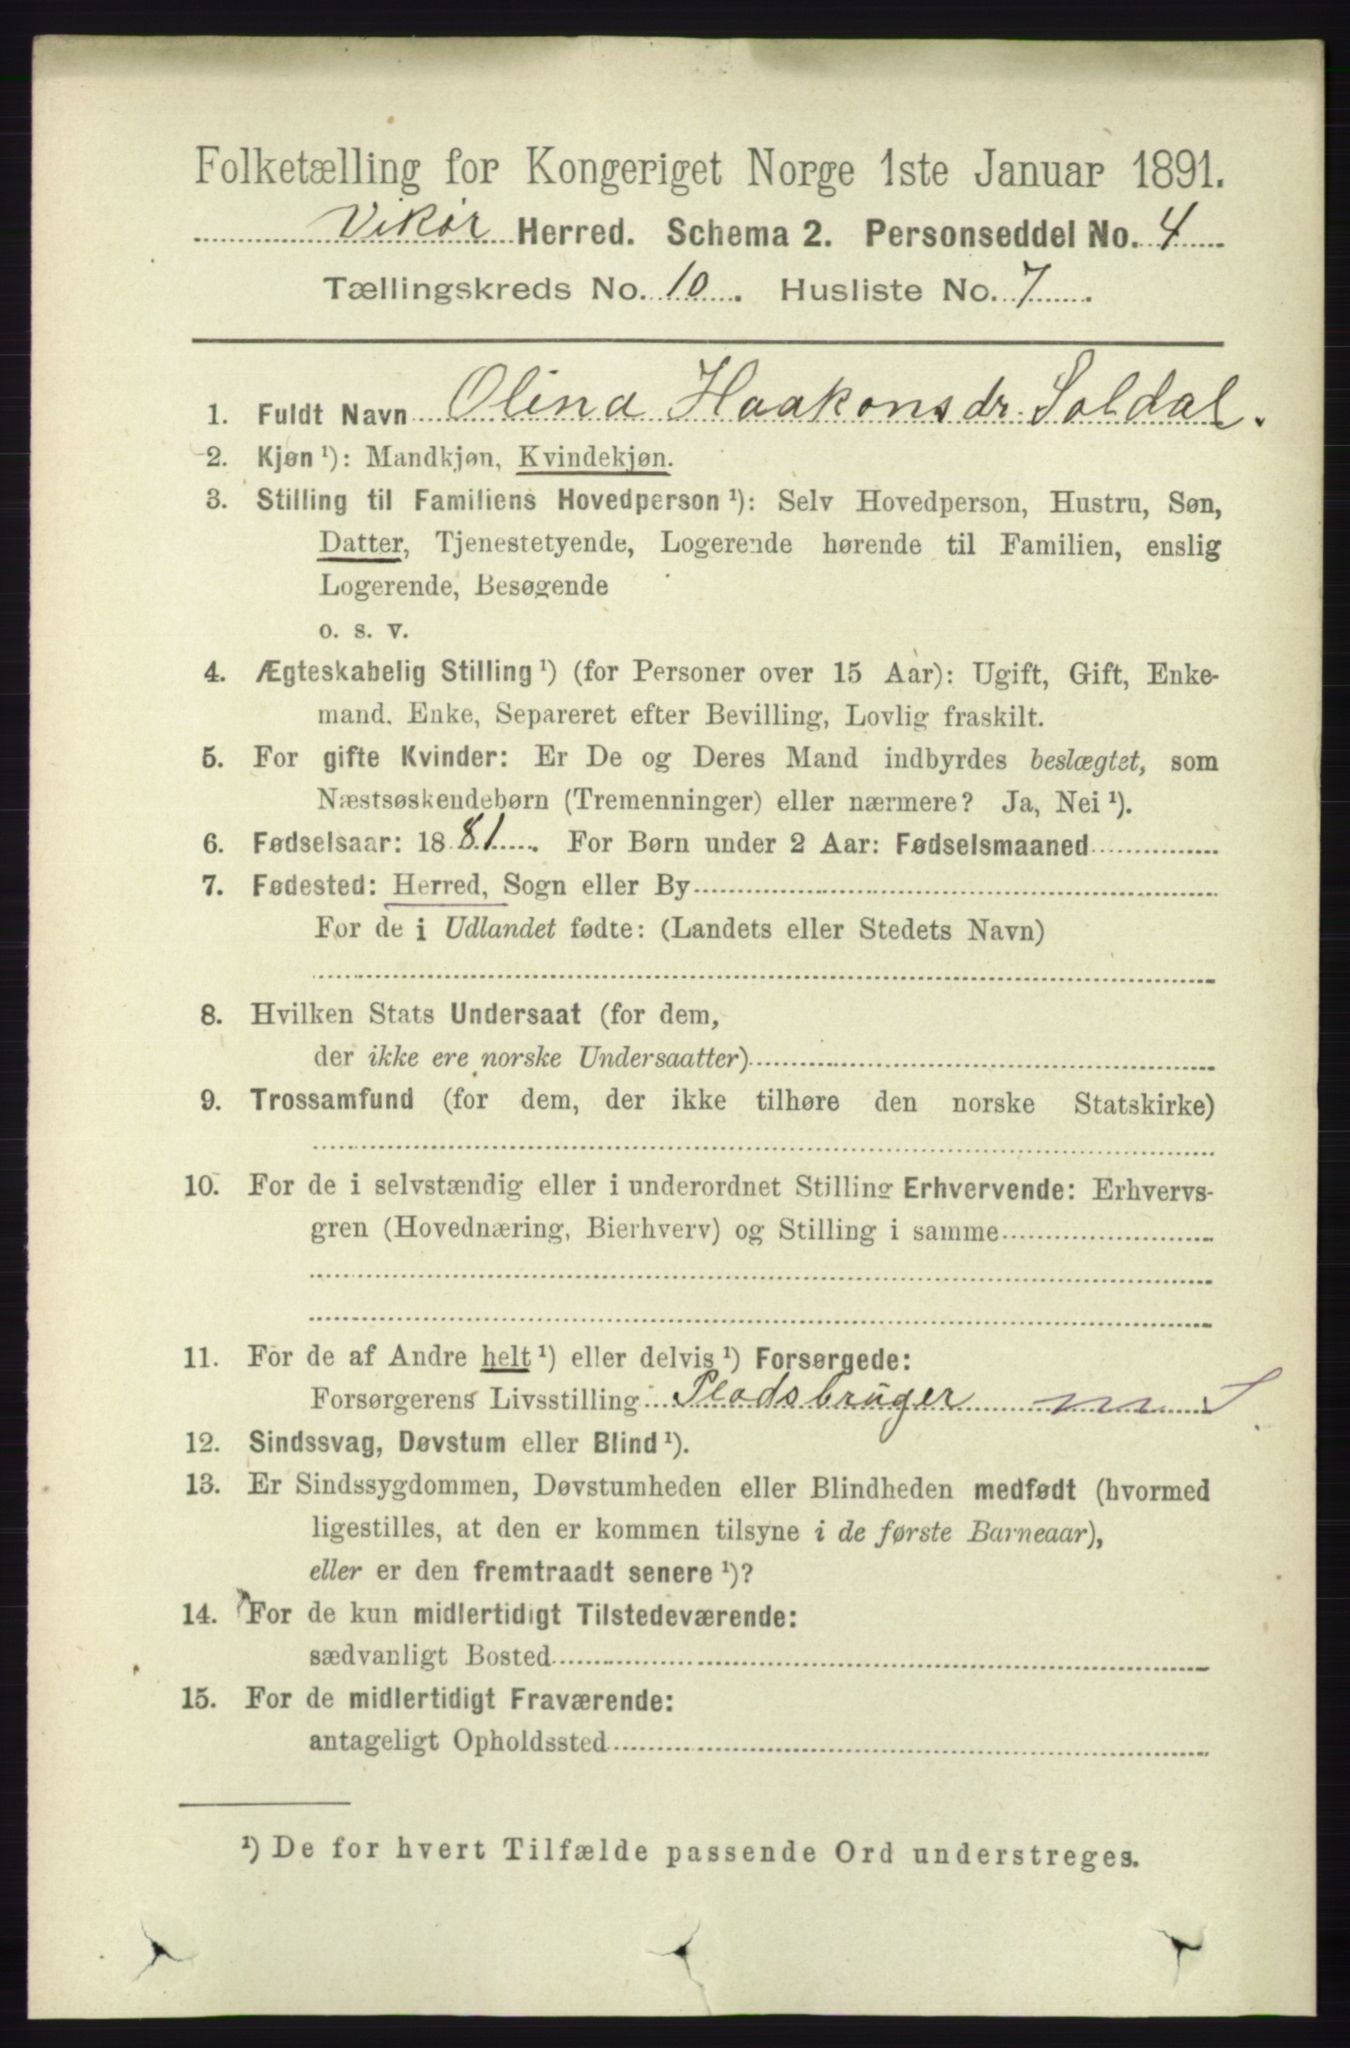 Folketælling for Kongeriget Norge 1ste Januar 1891.
Vikør Herred. Schema 2. Personseddel No. 4
Tællingskreds No. 10. Husliste No. 7.
1. Fuldt Navn Olina Haakonsdr. Soldal.
2. Kjøn ¹): Mandkjøn, Kvindekjøn.
3. Stilling til Familiens Hovedperson ¹): Selv Hovedperson, Hustru, Søn,
Datter, Tjenestetyende, Logerende hørende til Familien, enslig
Logerende, Besøgende
o. s. v.
4. Ægteskabelig Stilling ¹) (for Personer over 15 Aar): Ugift, Gift, Enke-
mand, Enke, Separeret efter Bevilling, Lovlig fraskilt.
5. For gifte Kvinder: Er De og Deres Mand indbyrdes beslægtet, som
Næstsøskendebørn (Tremenninger) eller nærmere? Ja, Nei ¹).
6. Fødselsaar: 1881. For Børn under 2 Aar: Fødselsmaaned
7. Fødested: Herred, Sogn eller By
For de i Udlandet fødte: (Landets eller Stedets Navn)
8. Hvilken Stats Undersaat (for dem,
der ikke ere norske Undersaatter)
9. Trossamfund (for dem, der ikke tilhøre den norske Statskirke)
10. For de i selvstændig eller i underordnet Stilling Erhvervende: Erhvervs-
gren (Hovednæring, Bierhverv) og Stilling i samme
11. For de af Andre helt ¹) eller delvis ¹) Forsørgede:
Forsørgerens Livsstilling Pladsbruger m S
12. Sindssvag, Døvstum eller Blind ¹).
13. Er Sindssygdommen, Døvstumheden eller Blindheden medfødt (hvormed
ligestilles, at den er kommen tilsyne i de første Barneaar),
eller er den fremtraadt senere ¹)?
14. For de kun midlertidigt Tilstedeværende:
sædvanligt Bosted
15. For de midlertidigt Fraværende:
antageligt Opholdssted
¹) De for hvert Tilfælde passende Ord understreges.